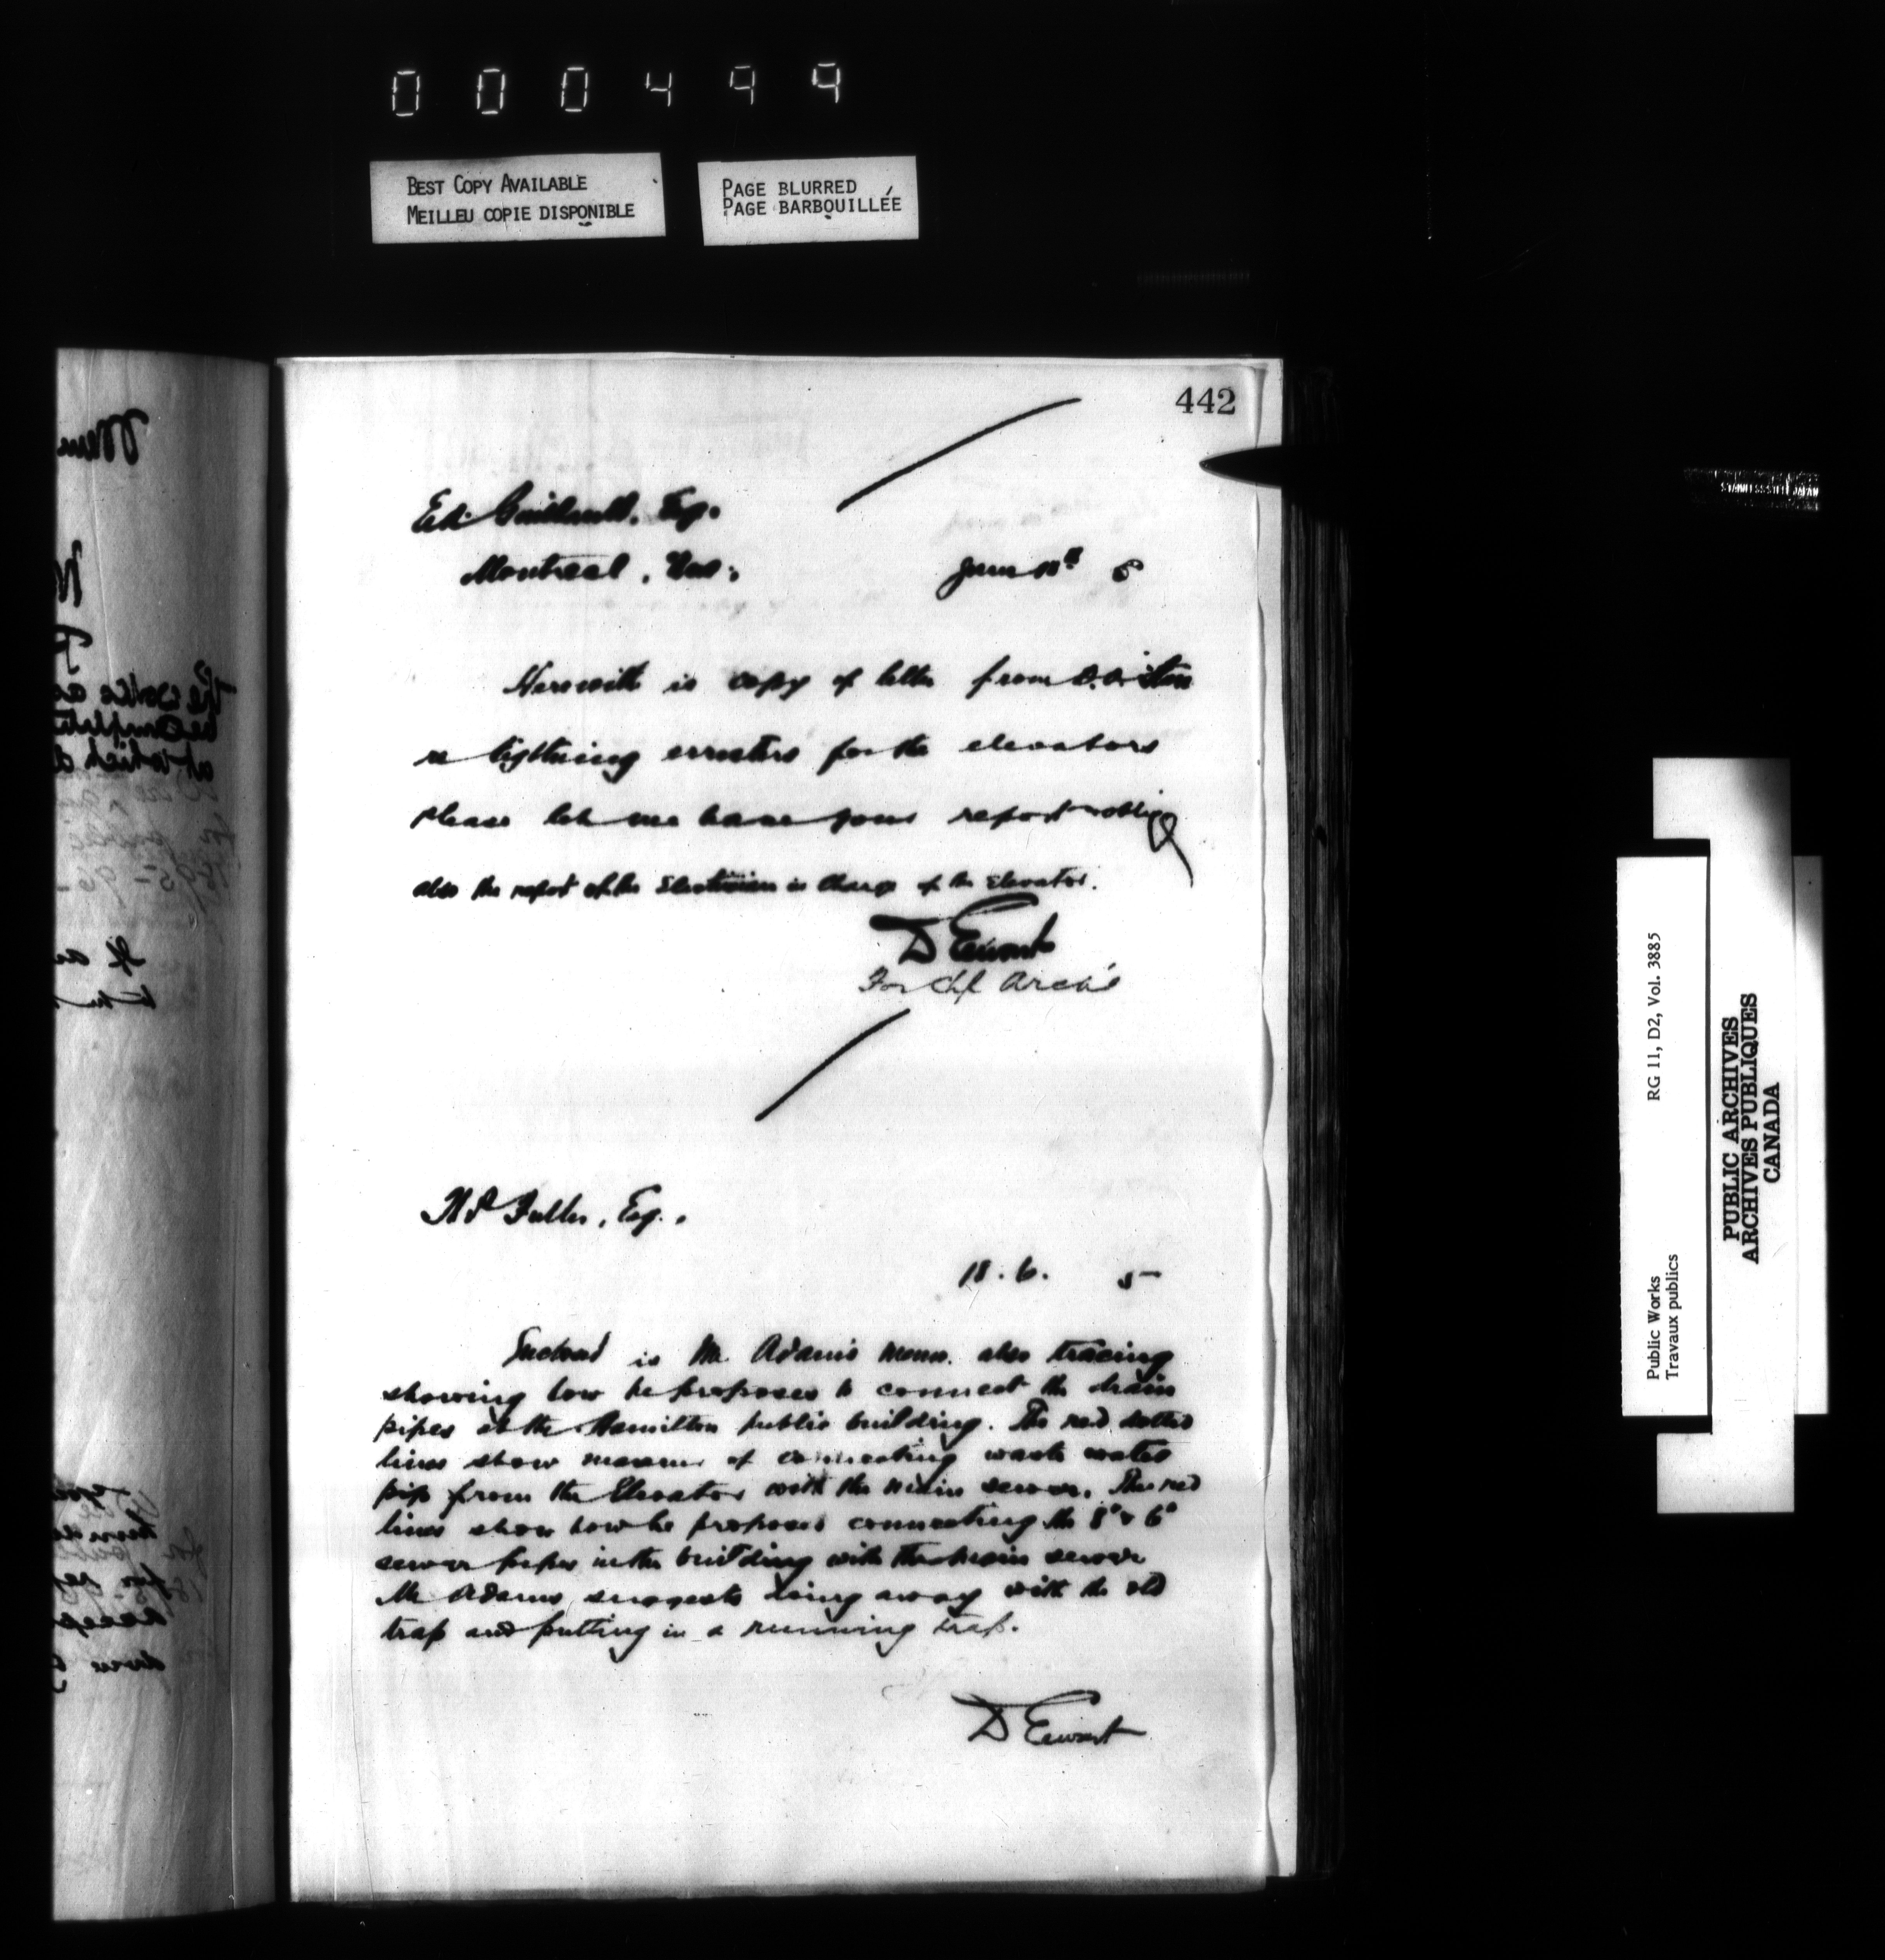 000499
BEST COPY AVAILABLE
MEILLEU COPIE DISPONIBLE
PAGE BLURRED
PAGE BARBOUILLÉE
442
Ed. Esq.
Montreal, Que.
June 18th 5
Herewith is copy of letter from
re lightning arrestors for the elevators
please let me have your report
also the report of the Electrician in charge of the Elevator.
D Ewart
For Chf Arch't
Fuller, Esq.,
18.6. 5
Enclosed is Mr. Adams memo. also tracing
showing how he proposes to connect the drain
pipes at the Hamilton public building. The red dotted
lines show manner of connecting waste water
pipe from the Elevator with the main sewer. The red
lines show how he proposes connecting the 8" & 6"
sewer pipes in the building with the main sewer
Mr Adams suggests doing away with the old
trap and putting in a running trap.
D Ewart
STAINLESS STEEL JAPAN
Public Works
Travaux publics
RG 11, D2, Vol. 3885
PUBLIC ARCHIVES
ARCHIVES PUBLIQUES
CANADA